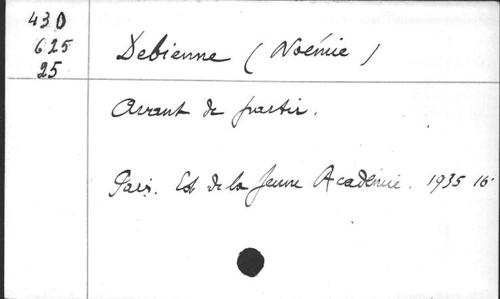 430
625
25
Debienne (Noémie)
Avant de partir.
Paris. Ed de la Jeune Académie. 1935 16